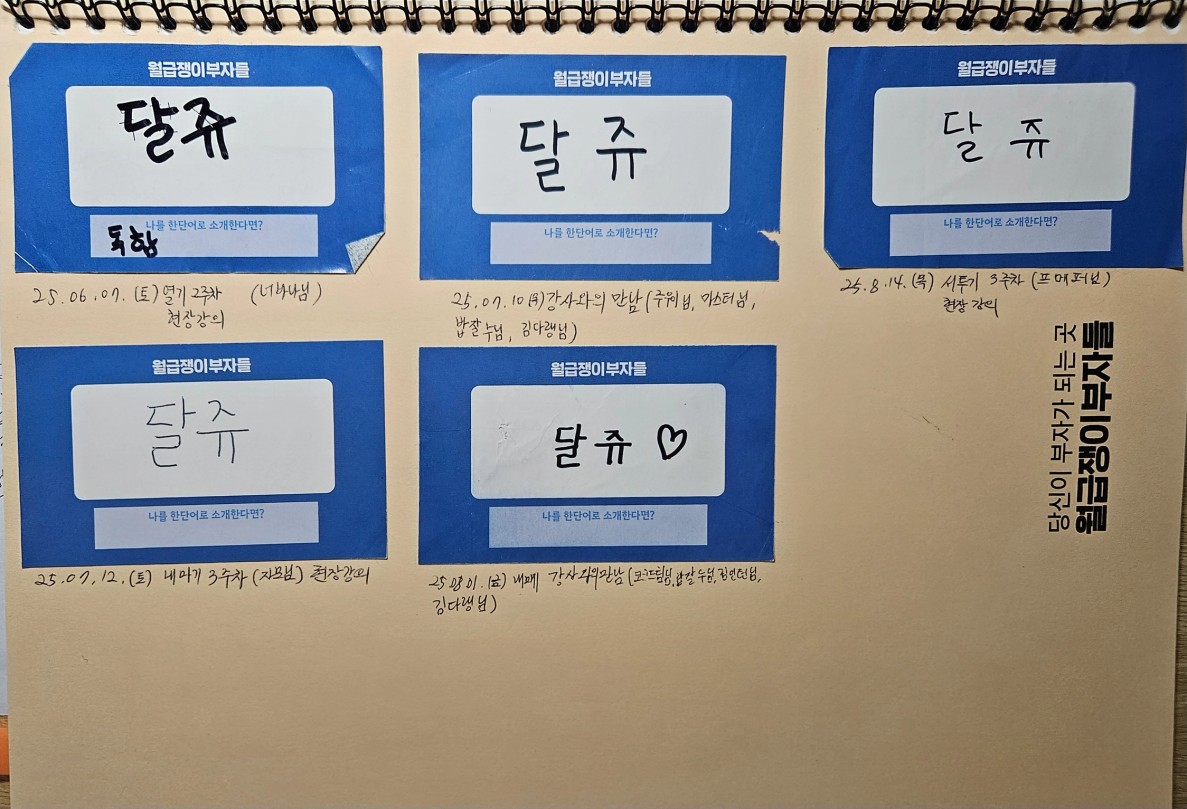 월급쟁이부자들
달쥬
나를 한단어로 소개한다면?
독함
25.06.07.(토) 열기 2주차 (너바나님)
현장강의
월급쟁이부자들
달 쥬
나를 한단어로 소개한다면?
25.07.10(목) 강사와의 만남 (주위님, 마스터님,
밥잘님, 김다랭님)
월급쟁이부자들
달 쥬
나를 한단어로 소개한다면?
25.8.14.(목) 서투기 3주차 (프메퍼님)
현장 강의
월급쟁이부자들
달쥬
나를 한단어로 소개한다면?
25.07.12.(토) 내마기 3주차 (자모님) 현장강의
월급쟁이부자들
달쥬 ♡
나를 한단어로 소개한다면?
25.08.01.(금) 강사와의만남 (코크드림님, 밥잘님,
김다랭님)
당신이 부자가 되는 곳
월급쟁이부자들